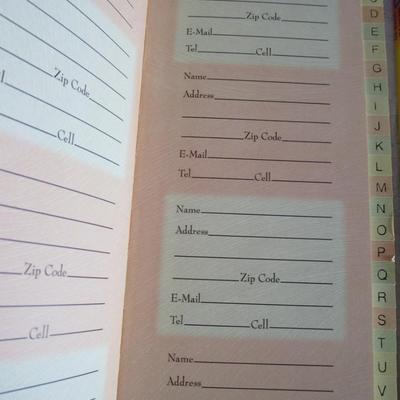 Zip Code
l
Cell
Zip Code
Cell
Zip Code
E-Mail
Tel Cell
Name
Address
Zip Code
E-Mail
Tel Cell
Name
Address
Zip Code
E-Mail
Tel Cell
Name
Address
D
E
F
G
H
I
J
K
L
M
N
O
P
Q
R
S
T
U
V